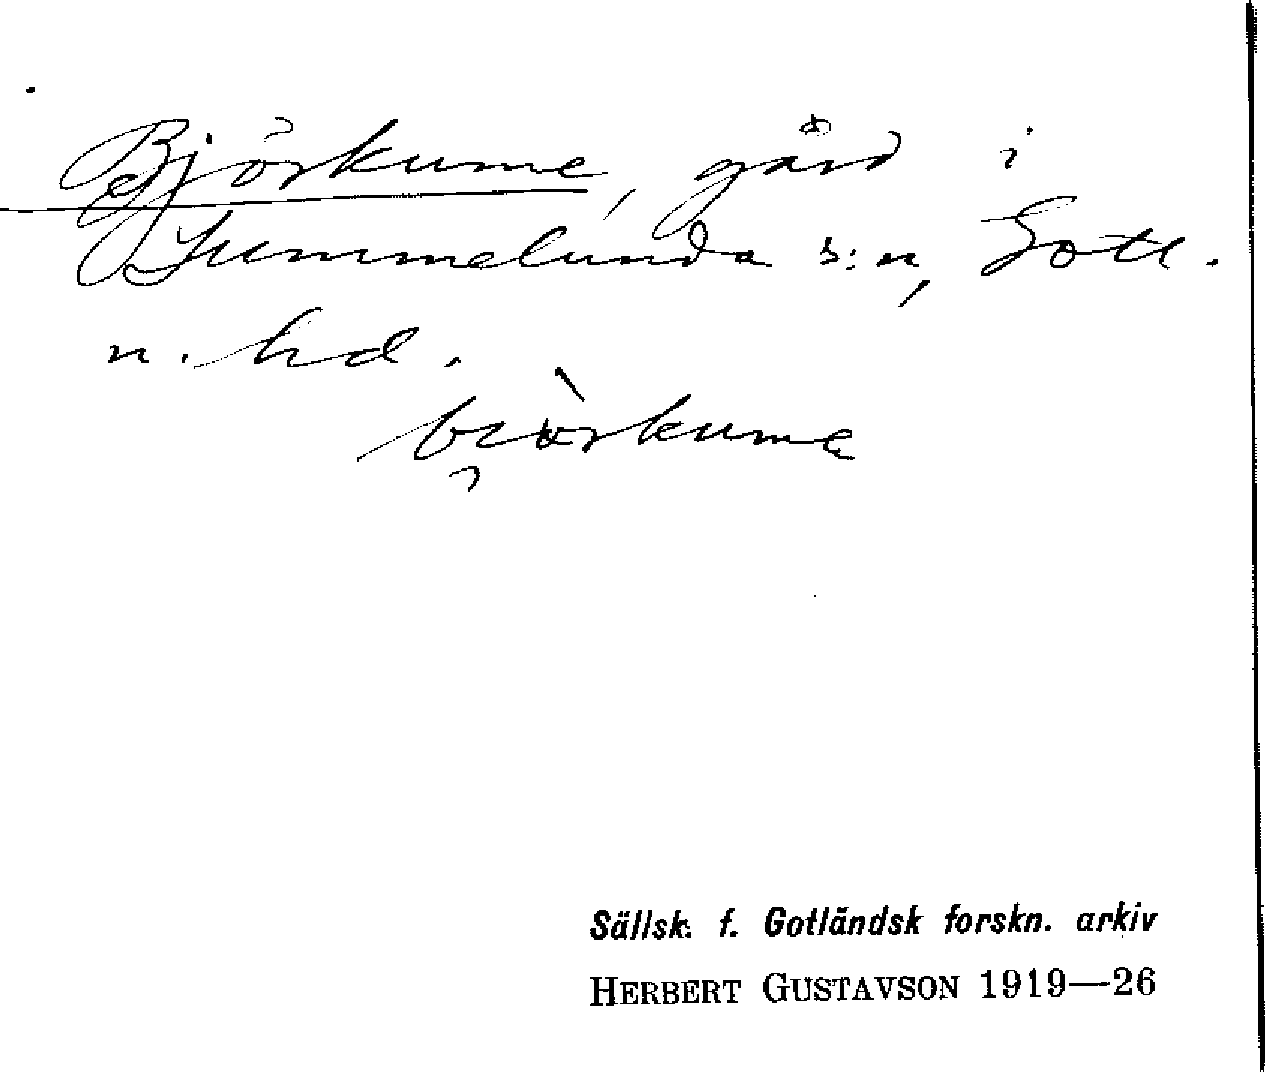 Björkume, gård i
Lummelunda s:n, Gotl.
n. hd.
bjòrkume
Sällsk. f. Gotländsk forskn. arkiv
HERBERT GUSTAVSON 1919—26